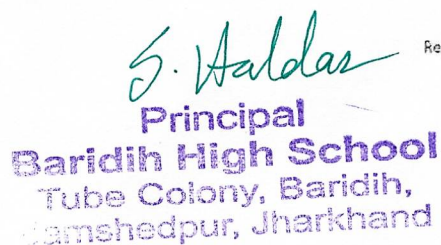 S. Haldar
Re
Principal
Baridih High School
Tube Colony, Baridih,
Jamshedpur, Jharkhand